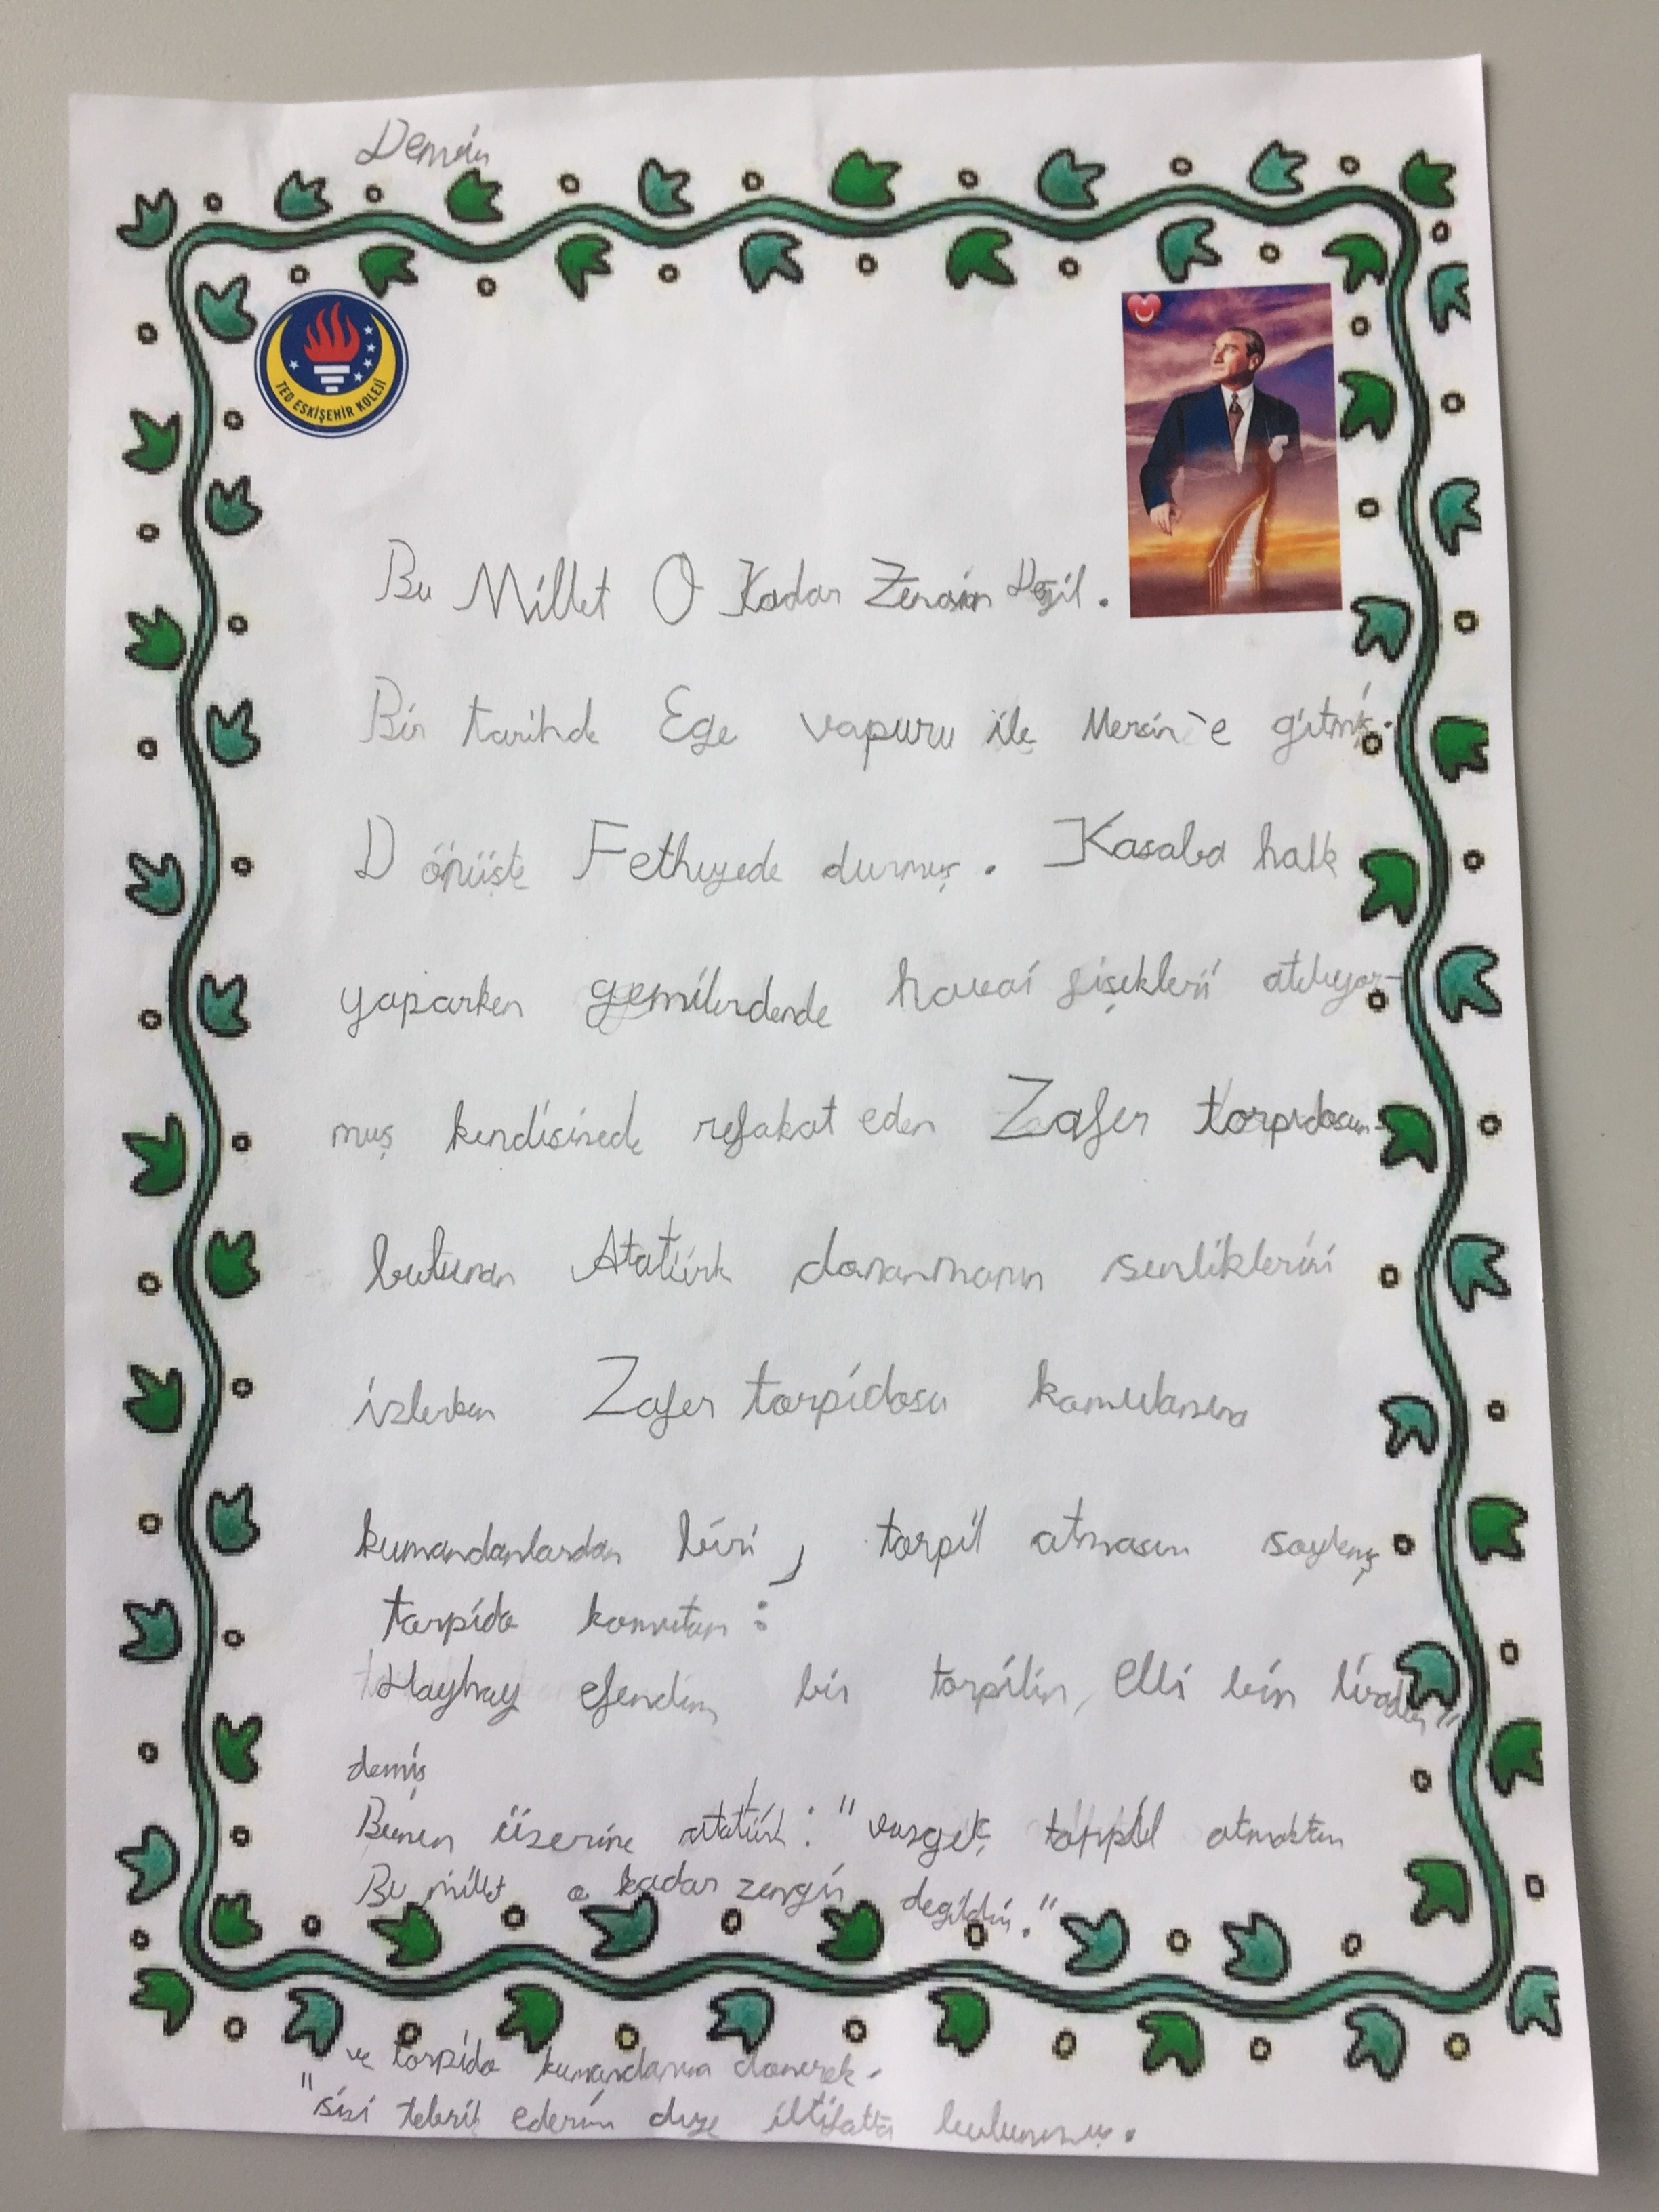 Demir
TED ESKİŞEHİR KOLEJİ
Bu Millet O Kadar Zengin Değil.
Bir tarihde Ege vapuru ile Mersin'e gitmiş.
Dönüşte Fethiyede durmuş. Kasaba halk
yaparken gemilerdende havai fişekleri atılıyor-
muş kendisinede refakat eden Zafer torpidosun-
bulunan Atatürk donanmanın senliklerini
izlerken Zafer torpidosu
kumandanlardan biri, torpil atmasın söylemiş
torpido komutan:
Hayhay efendim bir torpilin, elli bin liradır"
demiş
Bunun üzerine atatürk: "vazgeç torpil atmaktan
Bu millet o kadar zengin degildir."
ve torpido kumandanına donerek.
"sizi tebrik ederim diye iltifatta bulunmuş.